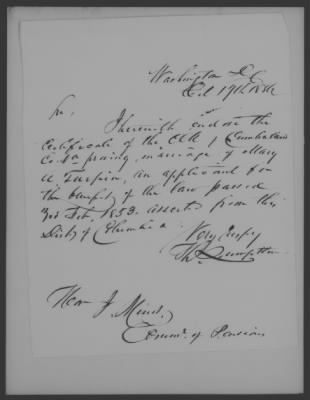 Washington D.C.
Oct 19th
Sir,
I herewith enclose the
Certificate of the Clk of Cumberland
Co. Va proving marriage of Mary
A. Turpin, an applicant for
the benefit of the law passed
3rd Feb. 1853. from this
District of Columbia
Very Respfy
Th.
Hon J. Minot.
Comr. of Pensions